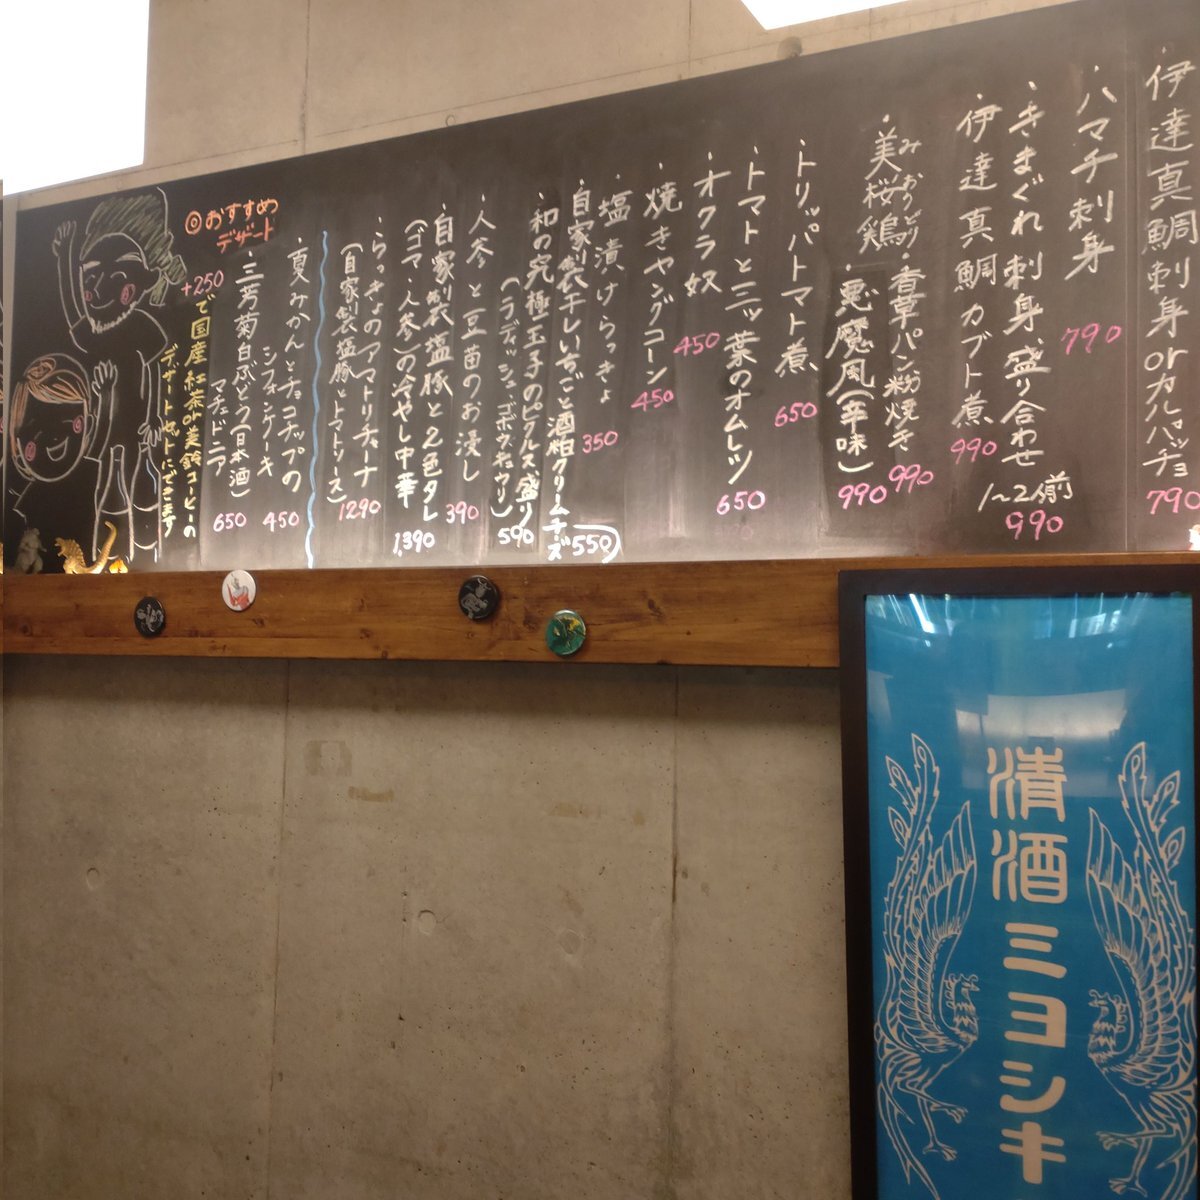 伊達真鯛刺身orカルパッチョ
790
・ハマチ刺身
790
・きまぐれ刺身盛り合わせ
1〜2人前
990
・伊達真鯛カブト煮
990
みおうどり
・美桜鶏・香草パン粉焼き
990
・悪魔風(辛味)
990
・トリッパトマト煮
650
・トマトと三ッ葉のオムレツ
650
・オクラ奴
450
・焼きヤングコーン
450
・塩漬けらっきょ
350
・自家製干しいちごと酒粕クリームチーズ
550
・和の究極玉子のピクルス盛り
(ラディッシュ、ゴボウ、キュウリ)
590
・人参と豆苗のお浸し
390
・自家製塩豚と2色タレ
(ゴマ・人参)の冷やし中華
1,390
・らっきょのアマトリチャーナ
(自家製塩豚とトマトソース)
1290
◎おすすめ
デザート
・夏みかんとチョコチップの
シフォンケーキ
450
・三芳菊白ぶどう(日本酒)
マチェドニア
650
+250で国産紅茶or美鈴コーヒーの
デザートセットにできます
清酒ミヨシキ